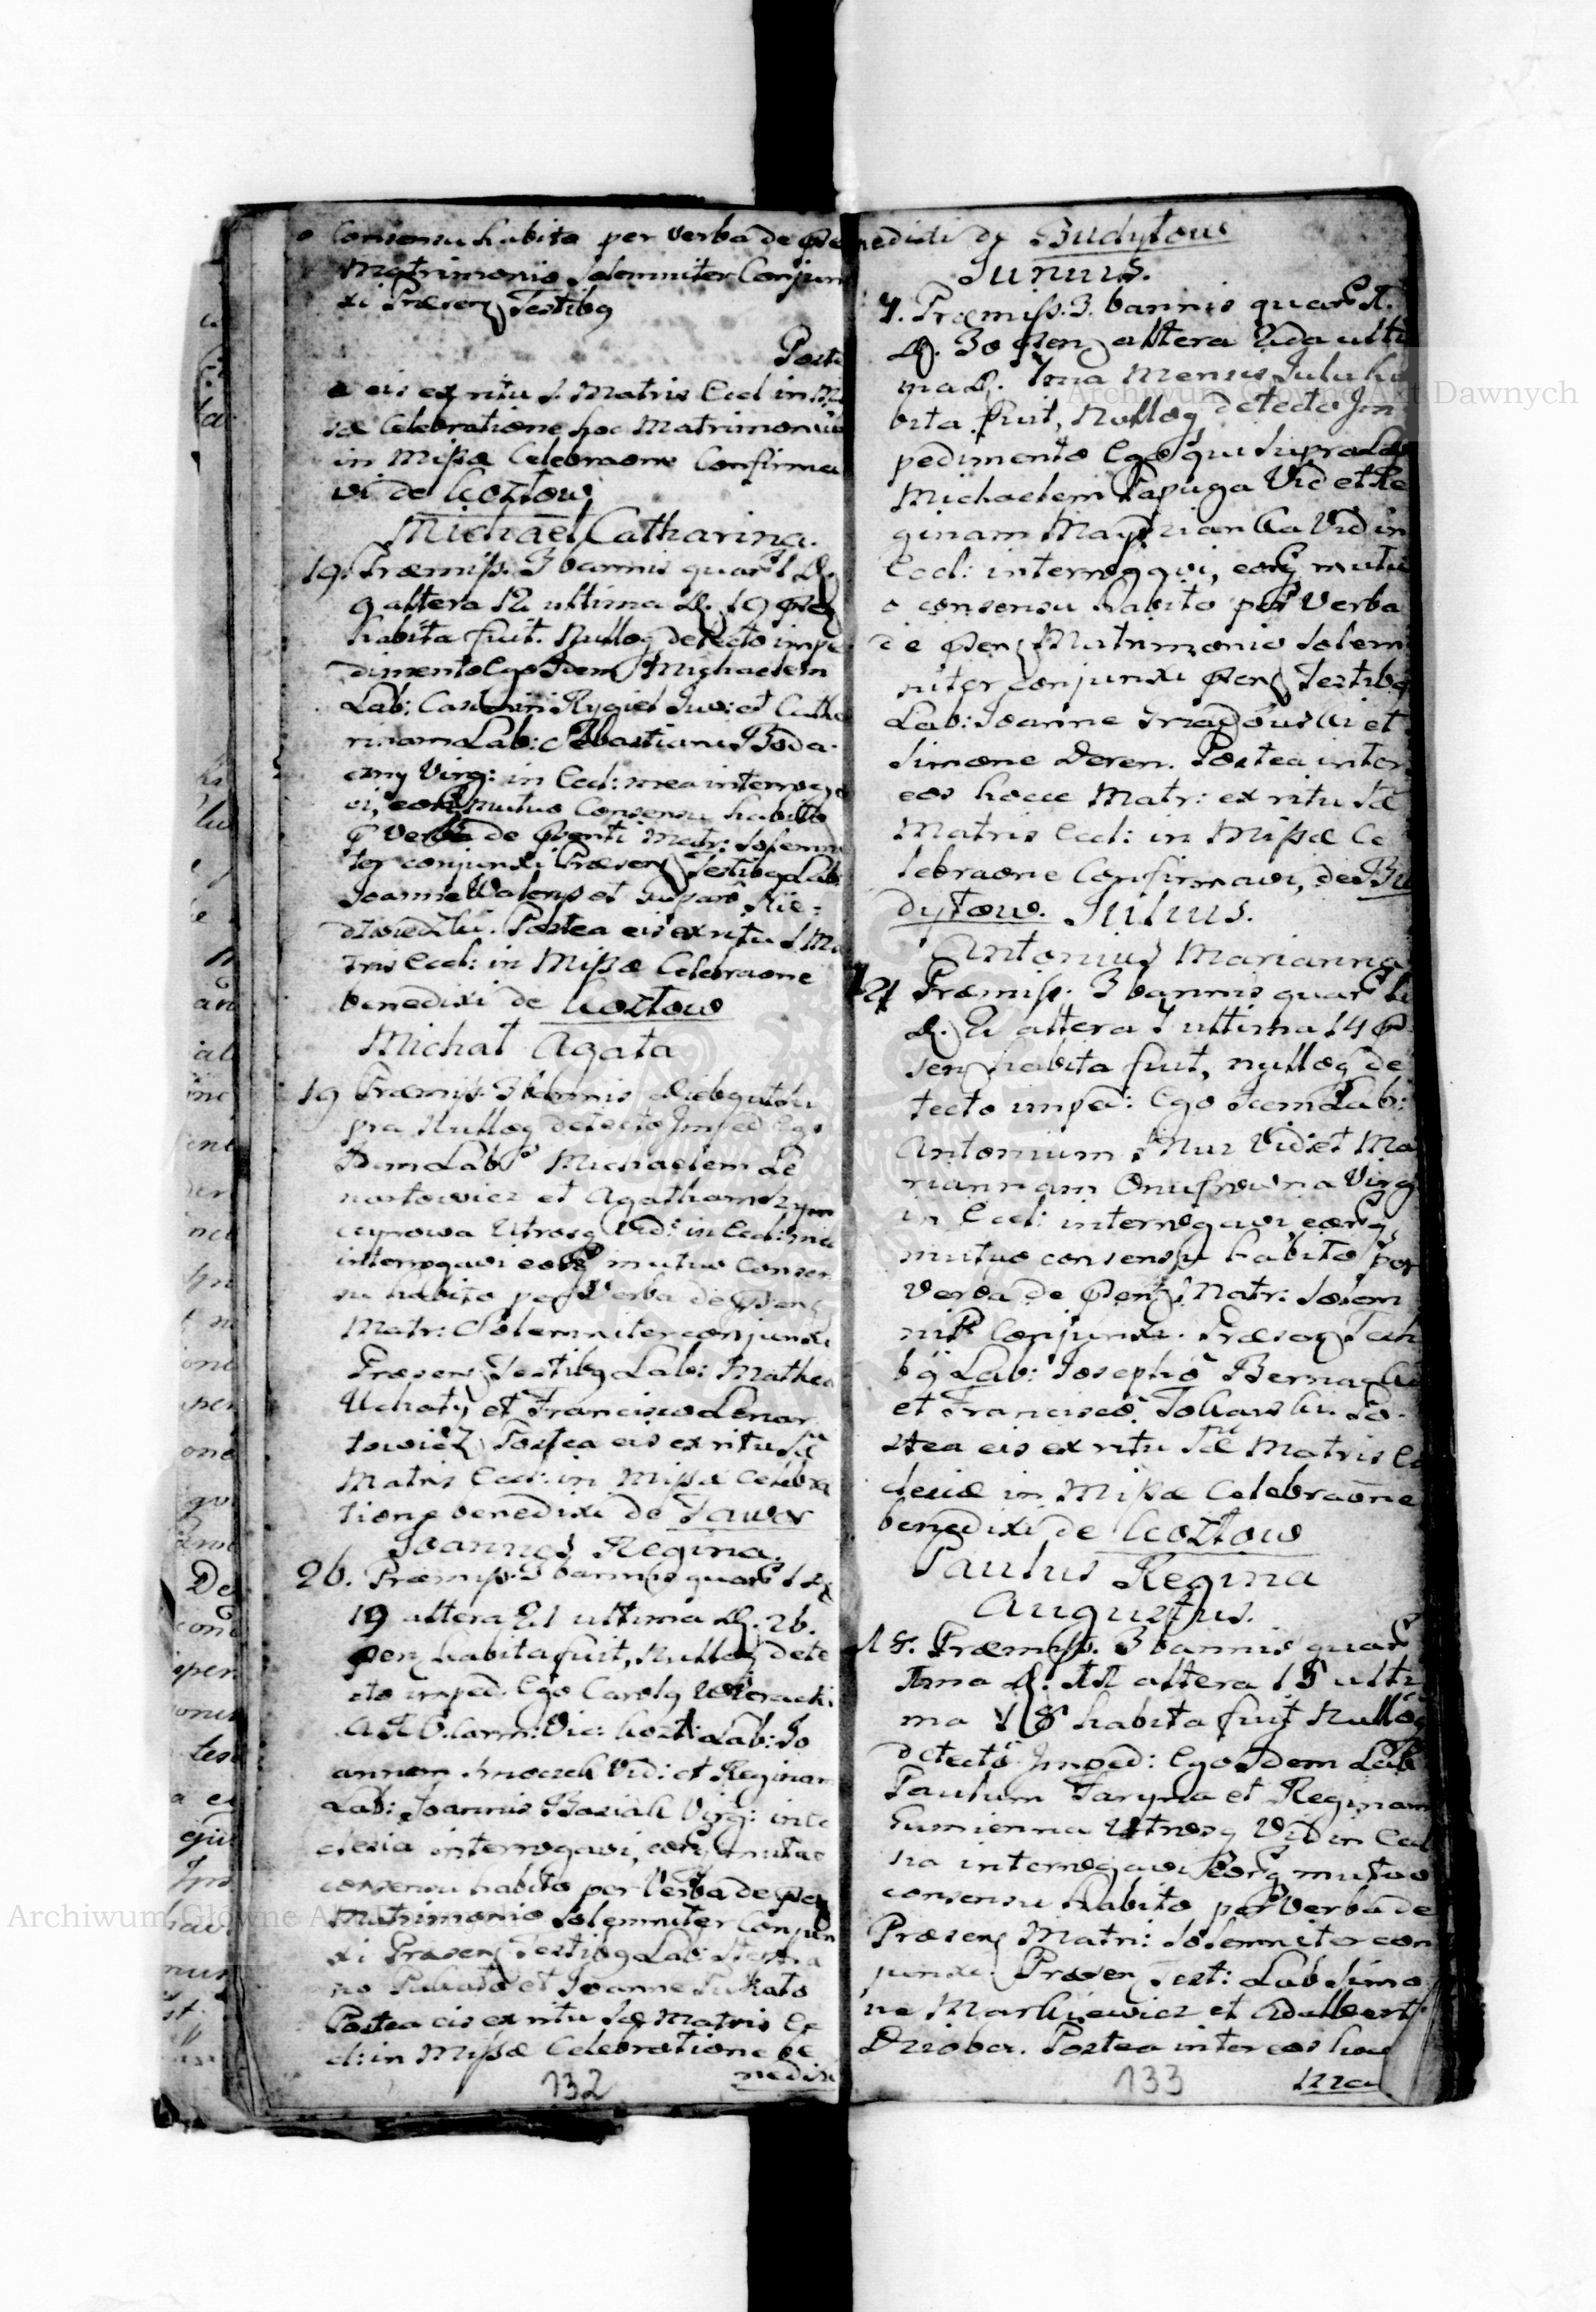 o Consensu habito per verba de Præ
Matrimonio Solemniter Conjun
xi Præsen Testibq
Poste
a eis ex ritu S. Matris Eccl in Mi
sæ Celebratione hoc Matrimonium
in Missæ Celebraone Confirma
vi de Kozłow
Michael Catharina.
19. Præmiss. 3 bannis quar 1 D.
9 altera 12 ultima D. 19 Præs
habita fuit. Nulloq detecto impe
dimento Ego Idem Michaelem
Lab: Casimiri Rygiel Juv: et Catha
rinam Lab: Sebastiani Boda
czny Virg: in Eccl: mea interroga
vi, eorq mutuo Consensu habito
verba de Præsenti Matr: Solemni
ter conjunxi Præsen Testibq Lab:
Joanne Walens et Gasparo Nie=
dzwiedzki. Postea eis ex ritu S Ma
tris Eccl: in Missæ Celebraone
benedixi de Kozłow
Michał Agata
19 Præmiss. 3 bannis Diebq ut Su
pra Nulloq detecto Imped Ego
Idem Lab Michaelem Le
nartowicz et Agatham Szym
czyxowa Utrosq Vid: in Eccl: mea
interrogavi eorq mutuo Consen
su habito per Verba de Præsen
Matr: Solemniter conjunxi
Præsen Testibq Lab: Matheo
Uchaty et Francisco Lenar
towicz Postea eis ex ritu Sæ
Matris Eccl: in Missæ Celebra
tione benedixi de Jawor
Joannes Regina.
26. Præmiss. 3 bannis quar 1 D.
19 altera 21 ultima D. 26.
Præsen habita fuit, Nulloq dete
cto imped. Ego Carolq
A R O. Carm: Vic: Kozł: Lab: Jo
annem Smoczek Vid: et Reginam
Lab: Joannis Basiak Virg: in Ec
clesia interrogavi, eorq mutuo
consensu habito per Verba de Præsen
Matrimonio Solemniter Conjun
xi Præsen Testibq Lab:
no et Joanne
Postea eis ex ritu Sæ Matris Ec
cl: in Missæ Celebratione be
nedixi
132
nedixi de Budyłow
Junius.
4. Præmiss. 3. bannis quar 1.
D. 30 Præsen altera 2da ulti
ma D. Ima Mensis Julii ha
bita fuit, Nulloq detecto Im
pedimento Ego qui Supra Lab
Michaelem Papuga Vid et Re
ginam Vid in
Eccl: interroggvi, eorq mutu
o consensu habito per Verba
de Præsen Matrimonio Solem
niter conjunxi Præsen Testibq
Lab: Joanne et
Simone Deren. Postea inter
eos hocce Matr: ex ritu Sæ
Matris Eccl: in Missæ Ce
lebraone Confirmavi, de Bu
dyłow. Julius.
Antonius Marianna
21 Præmiss. 3 bannis quar
D. altera 7 ultima 14 Præ
sen habita fuit, nulloq de
tecto imped: Ego Idem Lab:
Antonium Vid: et Ma
riannam Onufrowna Virg
in Eccl: interrogavi, eorq
mutuo consensu habito per
Verba de Præsen Matr: Solem
niter Conjunxi. Præsen Testi
bq Lab: Josepho Bernacki
et Francisco Tokarski. Po
stea eis ex ritu Sæ Matris Ec
clesiæ in Missæ Celebraone
benedixi de Kozłow
Paulus Regina
Augustus.
18. Præmiss. 3 bannis quar
Ima D. 12 altera 15 ulti
ma 18 habita fuit Nulloq
detecto Imped: Ego Idem Lab
Paulum Faryna et Reginam
Gumienna Utrosq Vid in Eccl
sia interrogavi eorq mutuo
consensu habito per Verba de
Præsen Matri: Solemniter con
junxi. Præsen Test: Lab Simo
ne Markiewicz et Adalbert
Drzober. Postea inter eos hoc
133